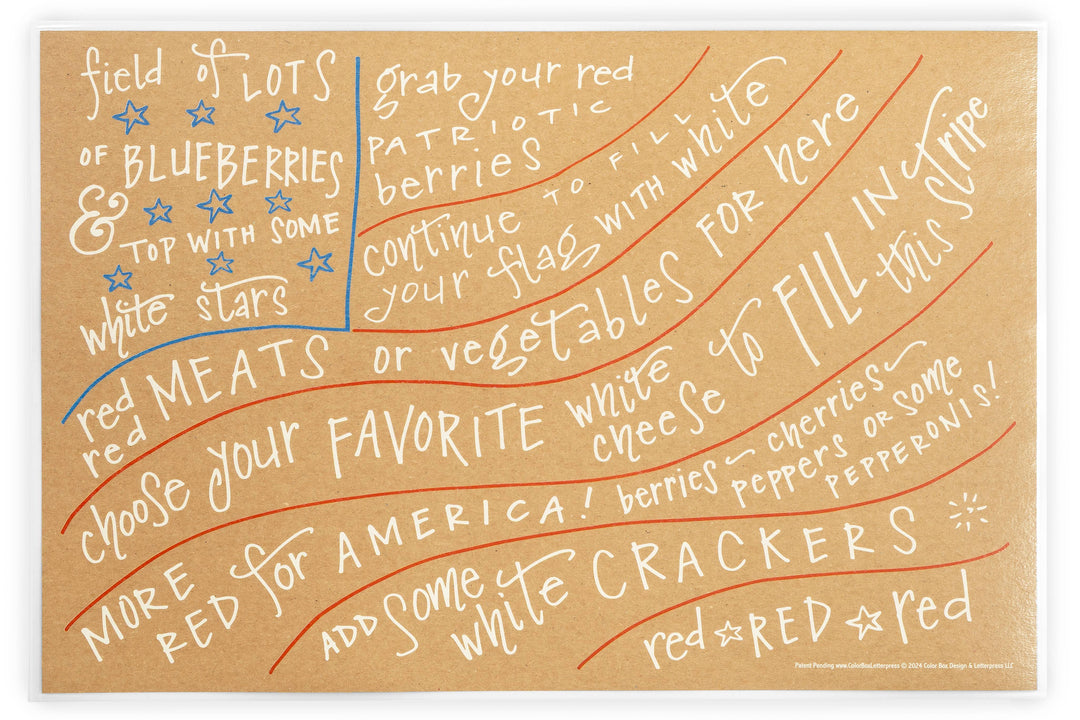 field of LOTS
OF BLUEBERRIES
& TOP WITH SOME
white stars
grab your red
PATRIOTIC
berries
continue TO FILL
your flag WITH white
red MEATS or vegetables FOR here
red
choose your FAVORITE white
cheese to FILL IN
this stripe
MORE
RED for AMERICA! berries~cherries~
peppers OR SOME
PEPPERONIS!
ADD some
white CRACKERS
red RED red
Patent Pending www.ColorBoxLetterpress © 2024 Color Box Design & Letterpress LLC